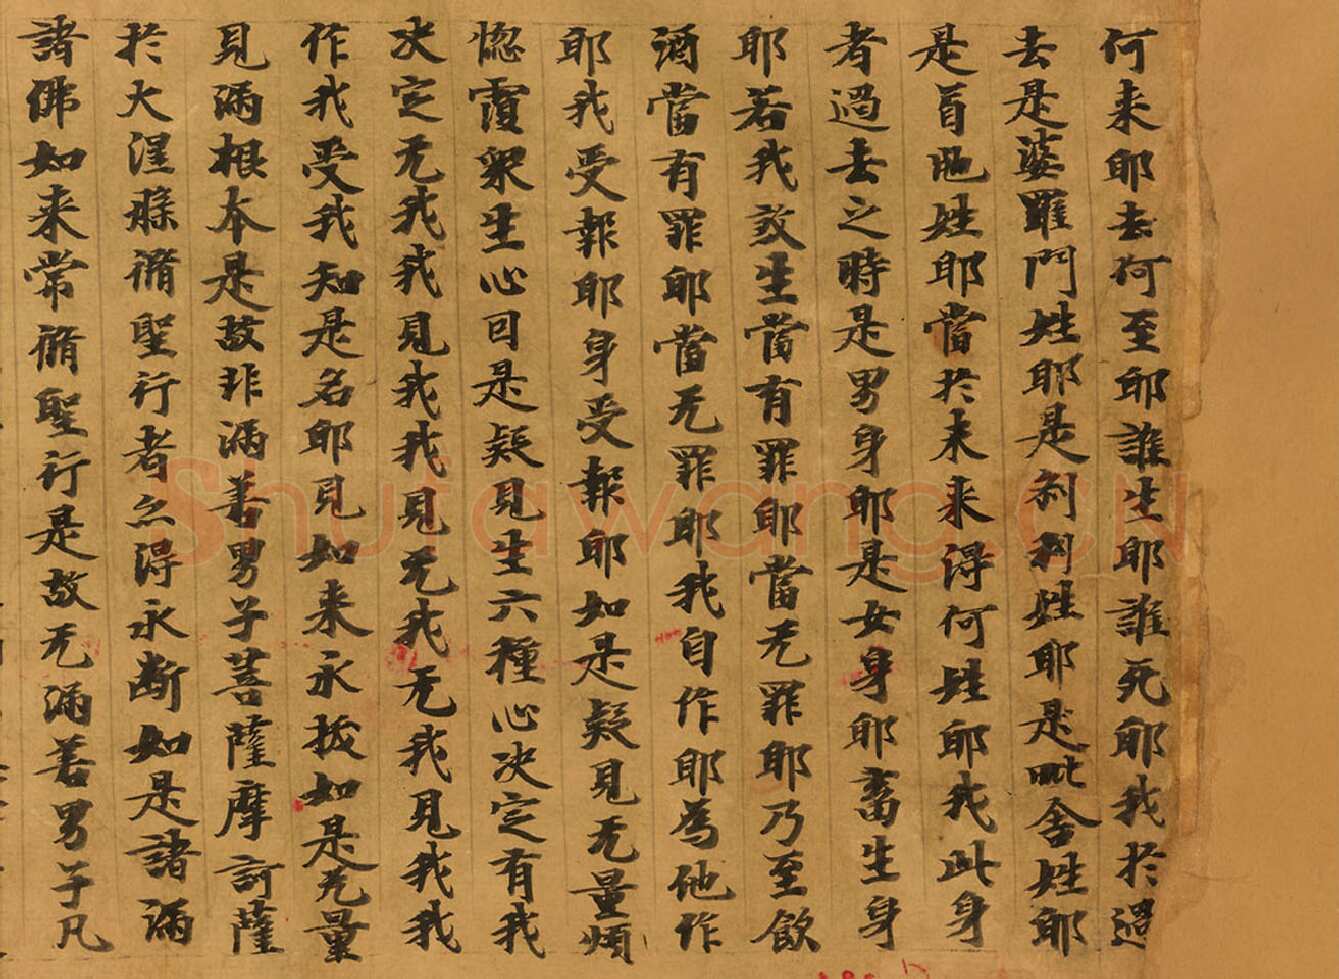 何来耶去何至耶誰生耶誰死耶我於過
去是婆羅門姓耶是刹利姓耶是毗舍姓耶
是首陁姓耶當於未来得何姓耶我此身
者過去之時是男身耶是女身耶畜生身
耶若我煞生當有罪耶當无罪耶乃至飲
酒當有罪耶當无罪耶我自作耶為他作
耶我受報耶身受報耶如是疑見无量煩
惚覆衆生心因是疑見生六種心决定有我
决定无我我見我我見无我无我見我我
作我受我知是名耶見如来永拔如是无量
見漏根本是故非漏善男子菩薩摩訶薩
於大涅槃脩聖行者亦得永断如是諸漏
諸佛如来常脩聖行是故无漏善男子凡
Shufawang.CN